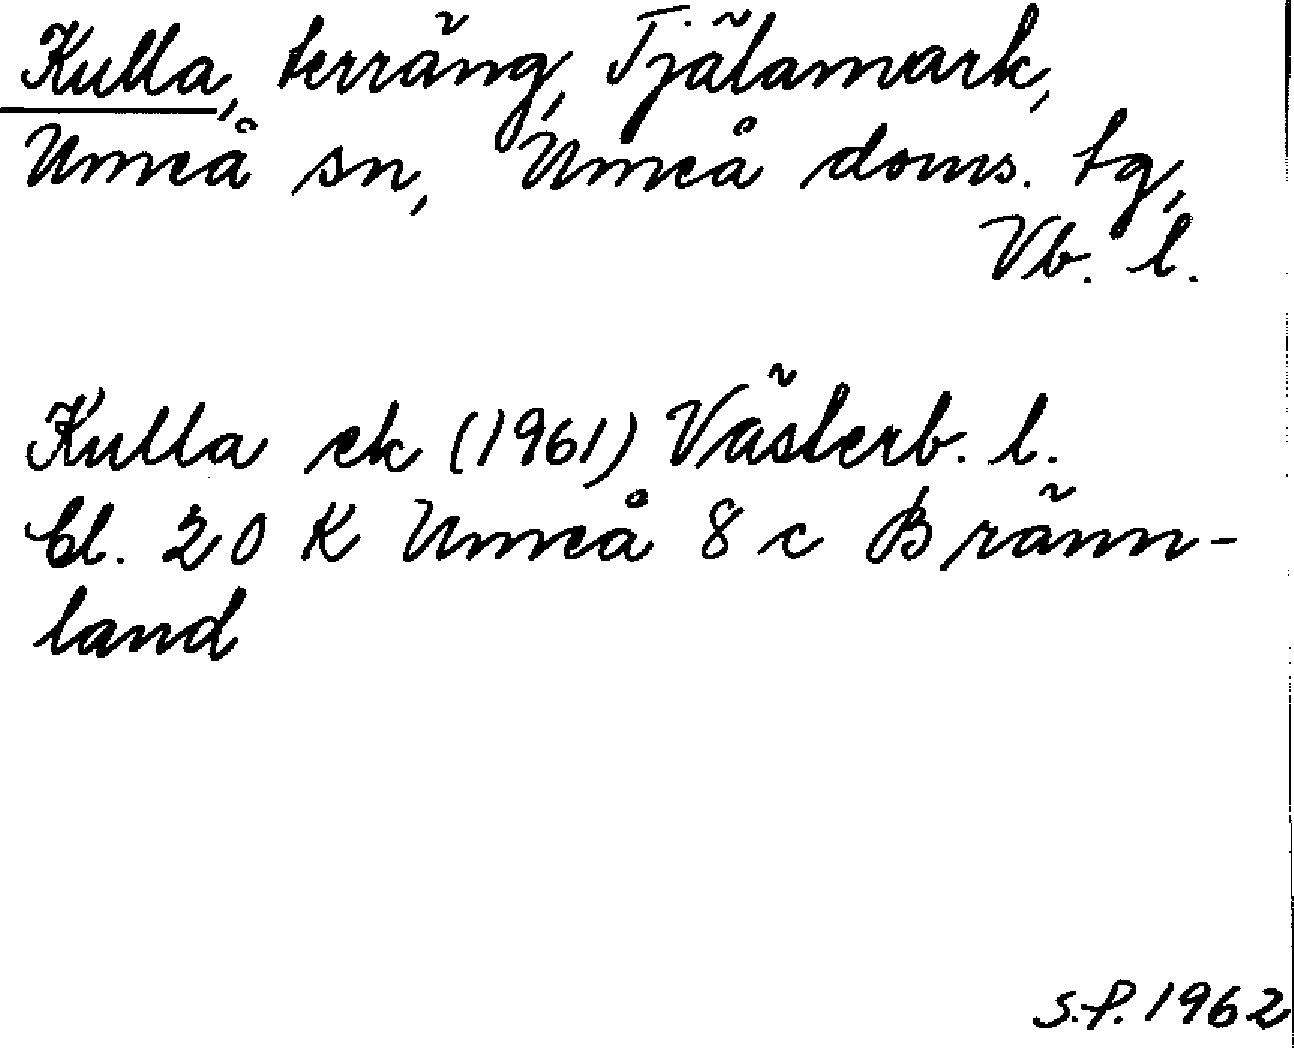 Kulla, terräng, Tjälamark,
Umeå sn, Umeå doms. tg,
Vb. l.
Kulla ek (1961) Västerb. l.
bl. 20 K Umeå 8 c Bränn-
land
S.P. 1962